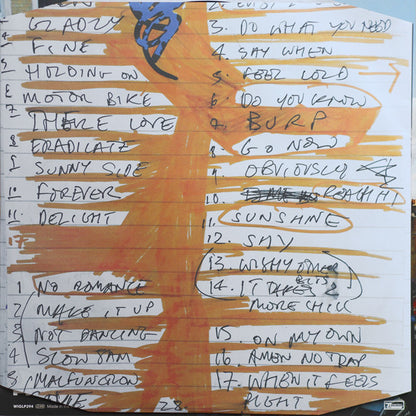 GLADLY
FINE
5 HOLDING ON
6 MOTOR BIKE
7 THERE LOVE
8 ERADICATE
9 SUNNY SIDE
10. FOREVER
11. DELIGHT
1 NO ROMANCE
2 MAKE IT UP
3 NOT DANCING
4 SLOW JAM
5 MALFUNCTION
3. DO WHAT YOU NEED
4. SAY WHEN
5. FEEL COLD
6. DO YOU KNOW
7. BURP
8 GO NOW
9. OBVIOUSLY
10. REACH IT
11. SUNSHINE
12. SAY
13. WISHY
14. IT TAKES
MORE CHILL
15. ON MY OWN
16. AMEN NO TRAP
17. WHEN IT FEELS
RIGHT
28
WIGLP394
Made in
Domino